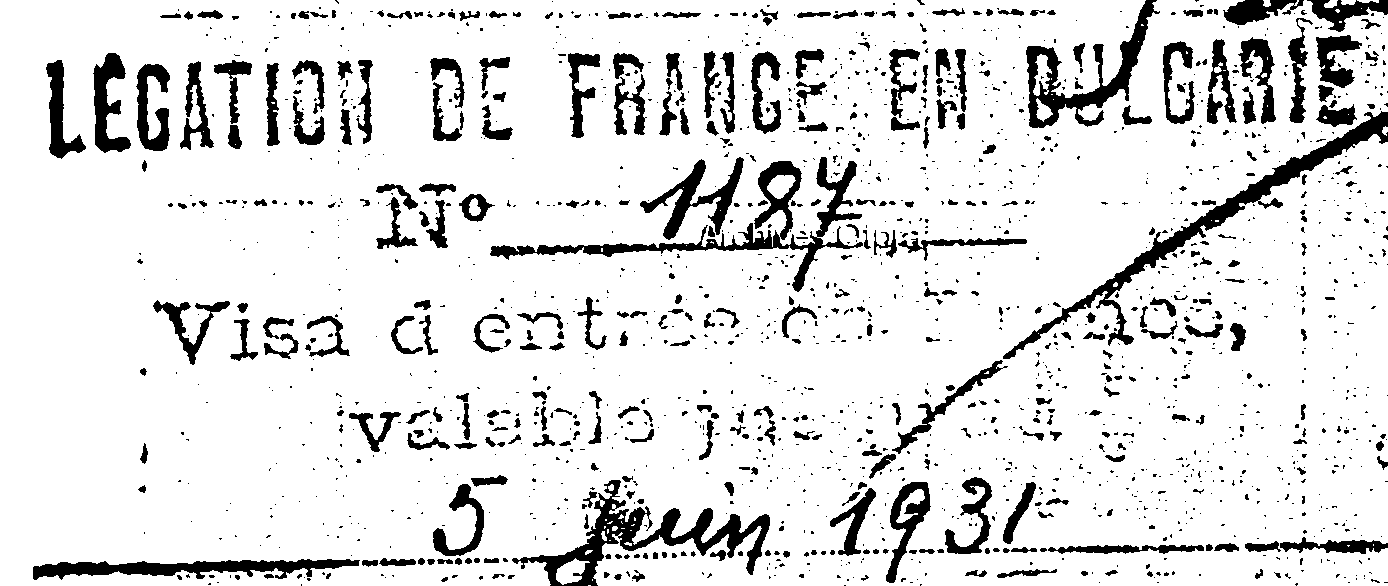 LÉGATION DE FRANCE EN BULGARIE
Nº 1187
Archives Ofpra
Visa d entrée en France,
valable jusqu'au
5 juin 1931